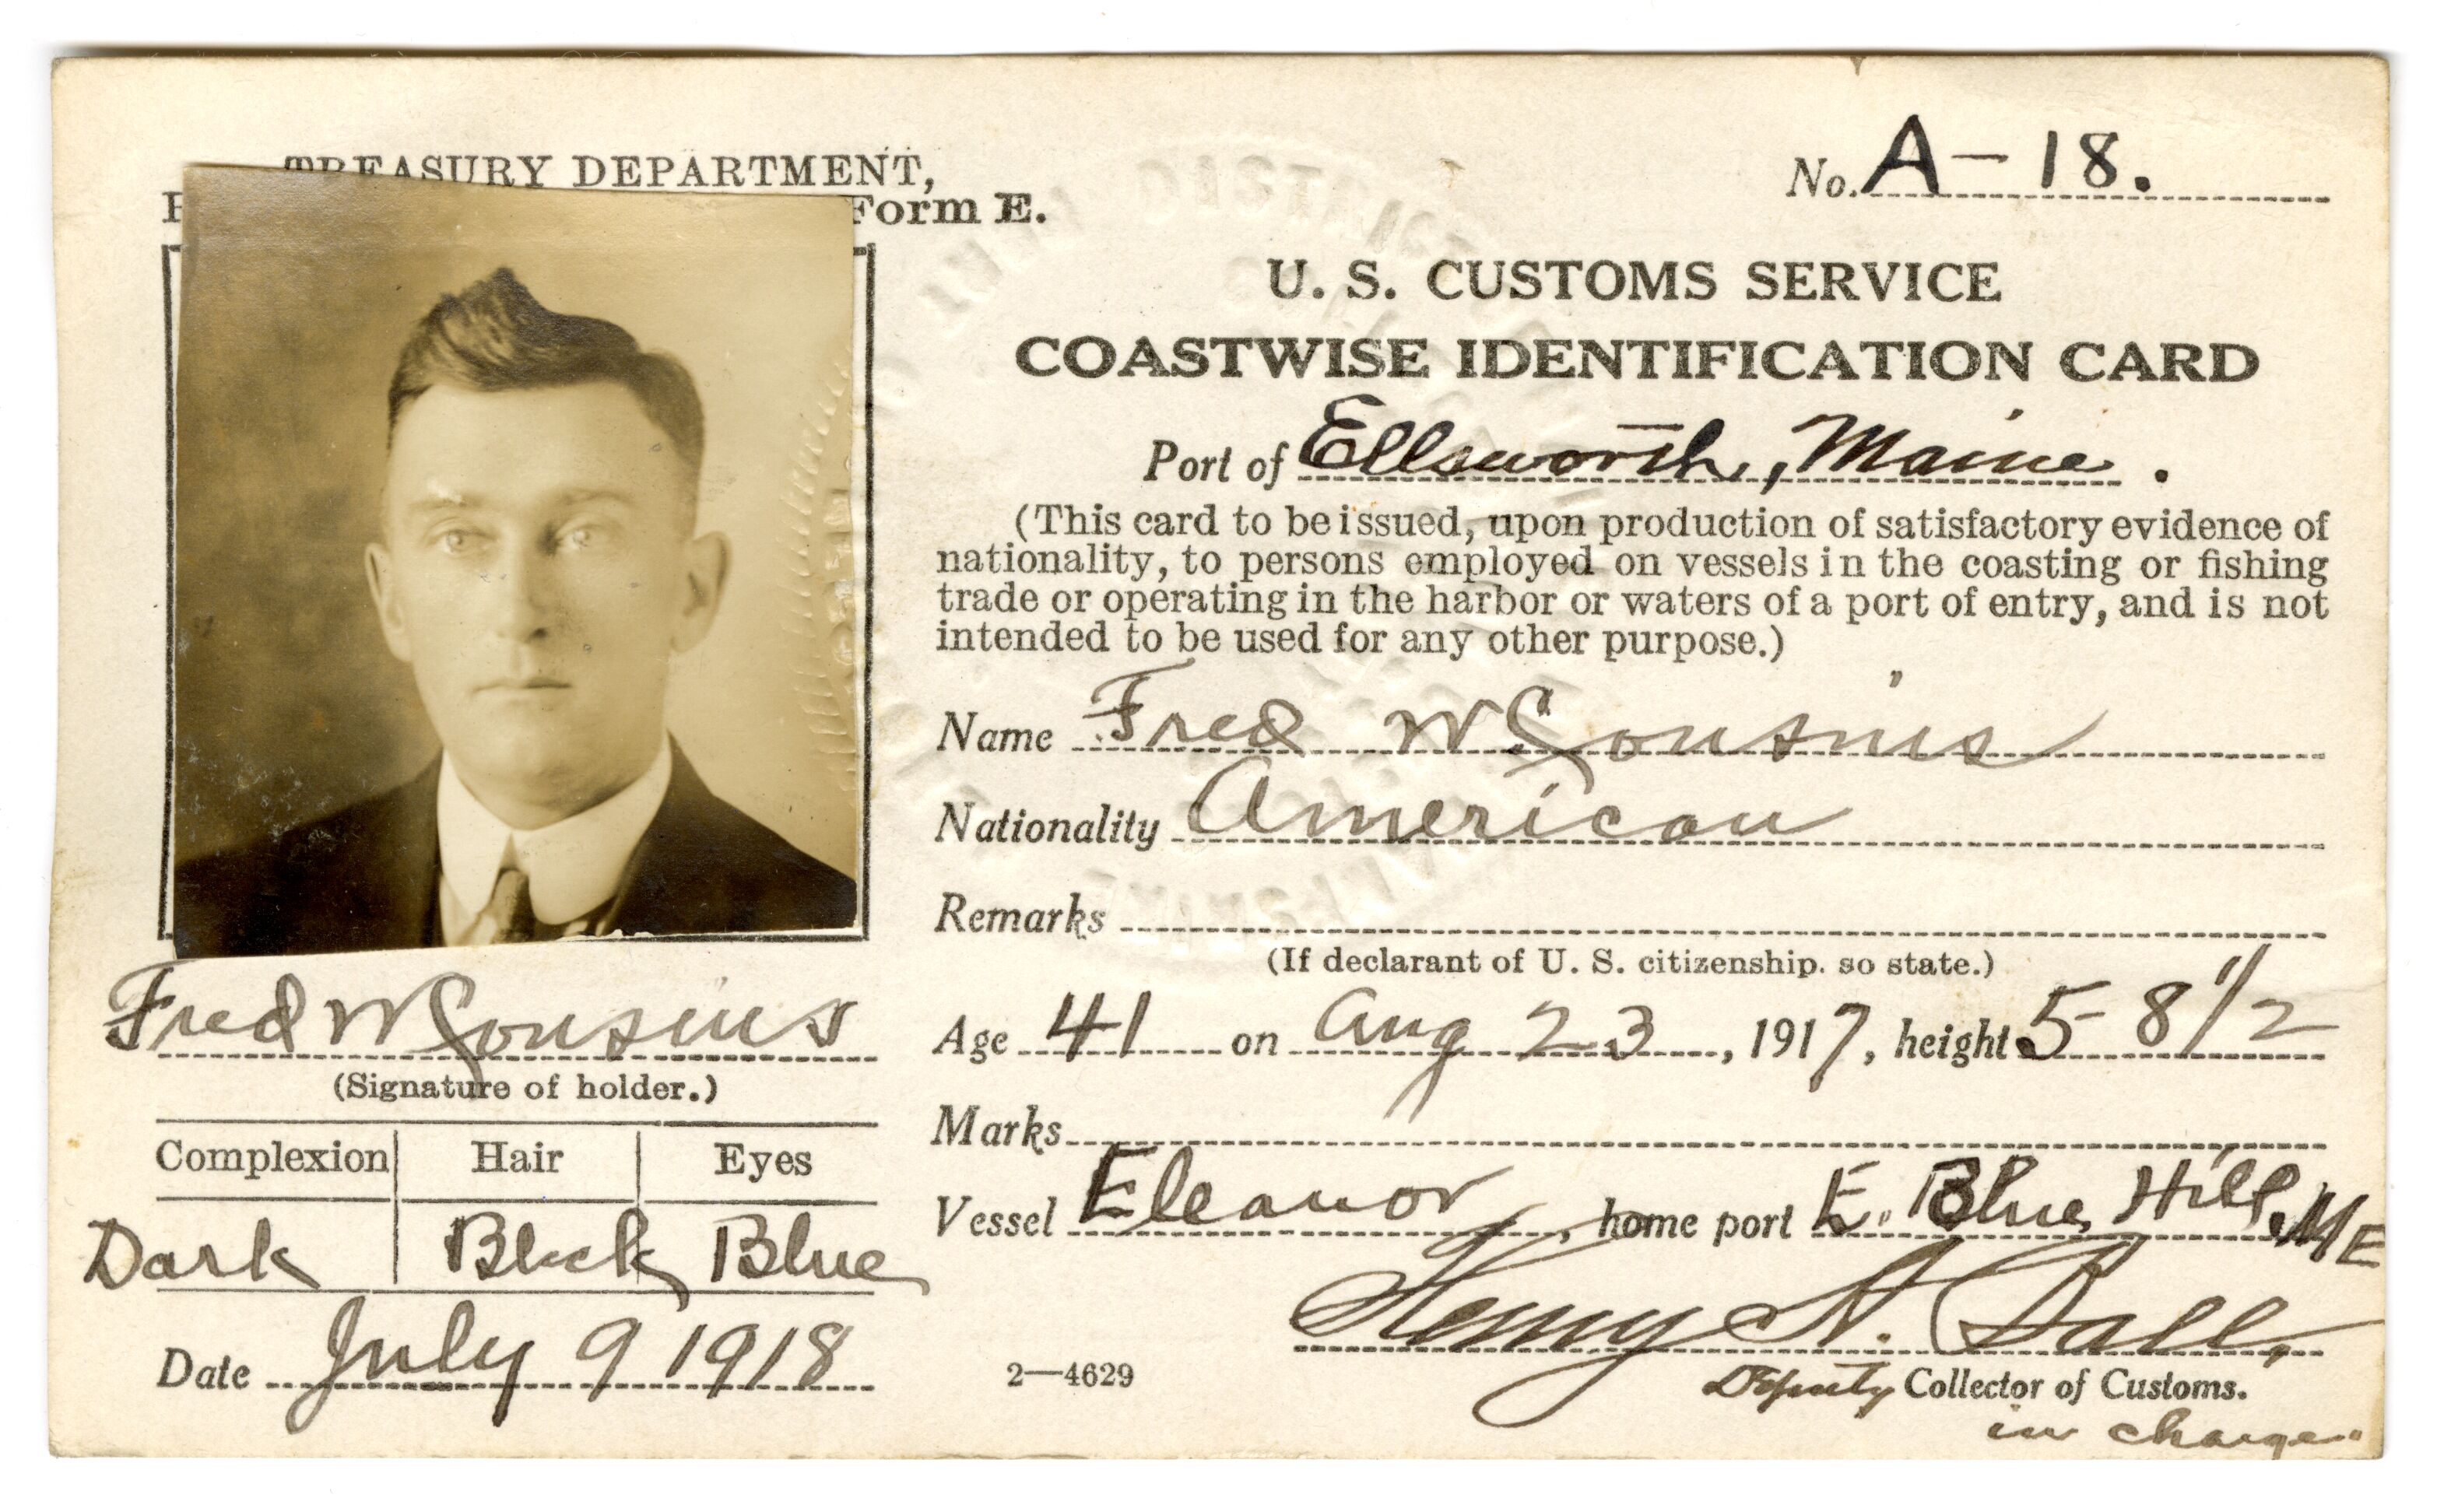 TREASURY DEPARTMENT,
Form E.
No. A-18.
U. S. CUSTOMS SERVICE
COASTWISE IDENTIFICATION CARD
Port of Ellsworth, Maine.
(This card to be issued, upon production of satisfactory evidence of
nationality, to persons employed on vessels in the coasting or fishing
trade or operating in the harbor or waters of a port of entry, and is not
intended to be used for any other purpose.)
Name Fred W Cousins
Nationality American
Remarks
(If declarant of U. S. citizenship. so state.)
Age 41 on Aug 23, 1917, height 5-8 1/2
Marks
Vessel Eleanor, home port E. Blue Hill, ME
Henry A.
Deputy Collector of Customs.
in charge.
Fred W Cousins
(Signature of holder.)
Complexion Hair Eyes
Dark Black Blue
Date July 9 1918
2—4629